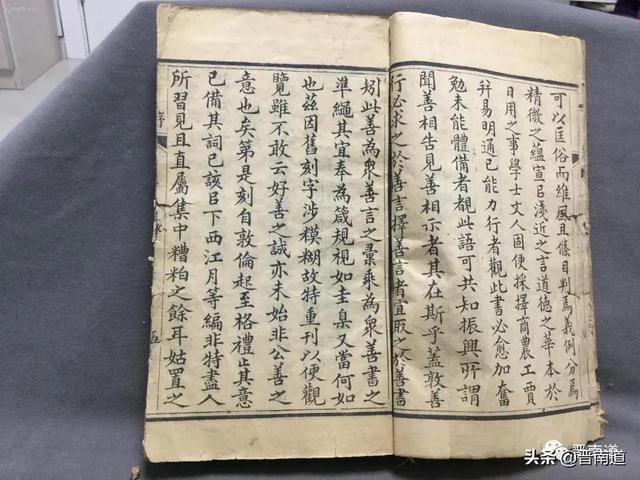 可以匡俗而維風且條目判焉義例分焉
精微之蘊宣㠯淺近之言道德之華本於
日用之事學士文人固便採擇商農工賈
幷易明通已能力行者觀此書必愈加奮
勉未能體備者覩此語可共知振興所謂
聞善相告見善相示者其在斯乎蓋敦善
行必求之於善言擇善言者宜取之於善書
矧此善為眾善言之彙乘為眾善書之
準繩其宜奉為箴規視如圭臬又當何如
也茲因舊刻字涉糢糊故特重刊以便觀
覽雖不敢云好善之誠亦未始非公善之
意也矣第是刻自敦倫起至格禮止其意
已備其詞已該㠯下西江月等編非特盡人
所習見且直屬集中糟粕之餘耳姑置之
序
五
晋南道
头条@晋南道